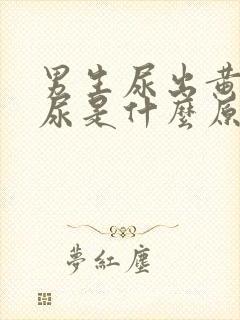 男生尿出黄
尿是什麼原
夢紅塵